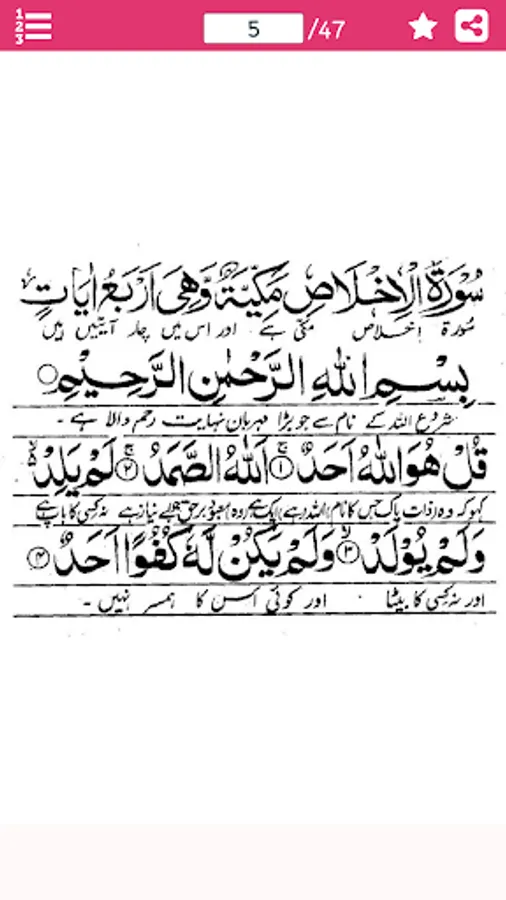 1
2
3
5 /47
سُوْرَةُ الْاِخْلَاصِ مَكِّيَّةٌ وَّهِىَ اَرْبَعُ اٰيَاتٍ
سُورۃ اِخلاص مکّی ہے اور اس میں چار آیتیں ہیں
بِسْمِ اللهِ الرَّحْمٰنِ الرَّحِيْمِ
شروع اللہ کے نام سے جو بڑا مہربان نہایت رحم والا ہے -
قُلْ هُوَ اللهُ اَحَدٌ ۚ‏﴿۱﴾ اَللهُ الصَّمَدُ ۚ‏﴿۲﴾ لَمْ يَلِدْ ۙ
کہو کہ وہ (ذات پاک جس کا نام) اللہ (ہے) ایک ہے (وہ) معبود برحق جو بے نیاز ہے نہ کسی کا باپ ہے
وَلَمْ يُوْلَدْ ۙ‏﴿۳﴾ وَلَمْ يَكُنْ لَّهٗ كُفُوًا اَحَدٌ ﴿۴﴾
اور نہ کسی کا بیٹا اور کوئی اس کا ہمسر نہیں -